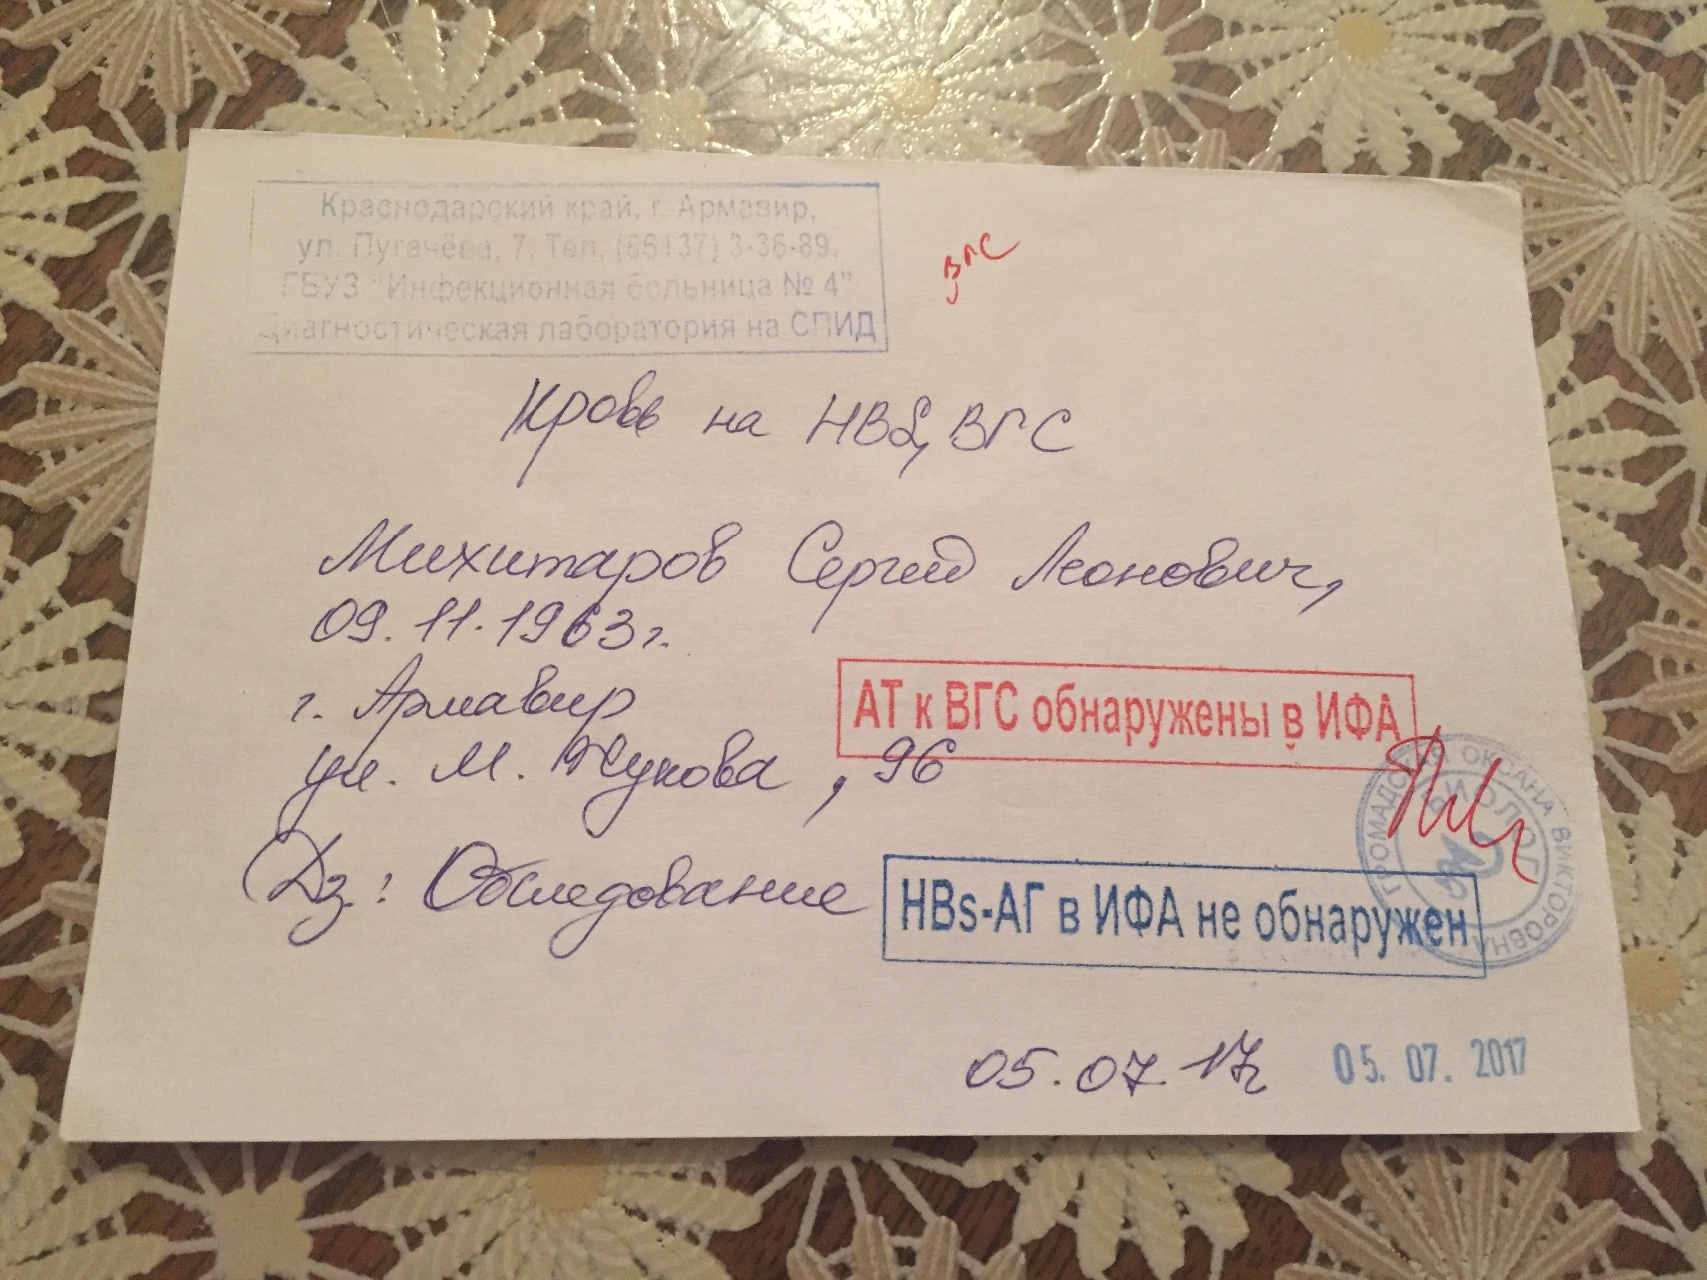 Краснодарский край, г. Армавир,
ул. Пугачёва, 7. Тел. (86137) 3-36-89.
ГБУЗ "Инфекционная больница № 4"
Диагностическая лаборатория на СПИД
ВГС
Кровь на HBS, ВГС
Михитаров Сергей Леонович,
09.11.1963г.
г. Армавир
АТ к ВГС обнаружены в ИФА
ул. М. Жукова, 96
ГРОМАДСКАЯ ОКСАНА ВИКТОРОВНА
Dз: Обследование
HBs-АГ в ИФА не обнаружен
05.07.17г
05. 07. 2017